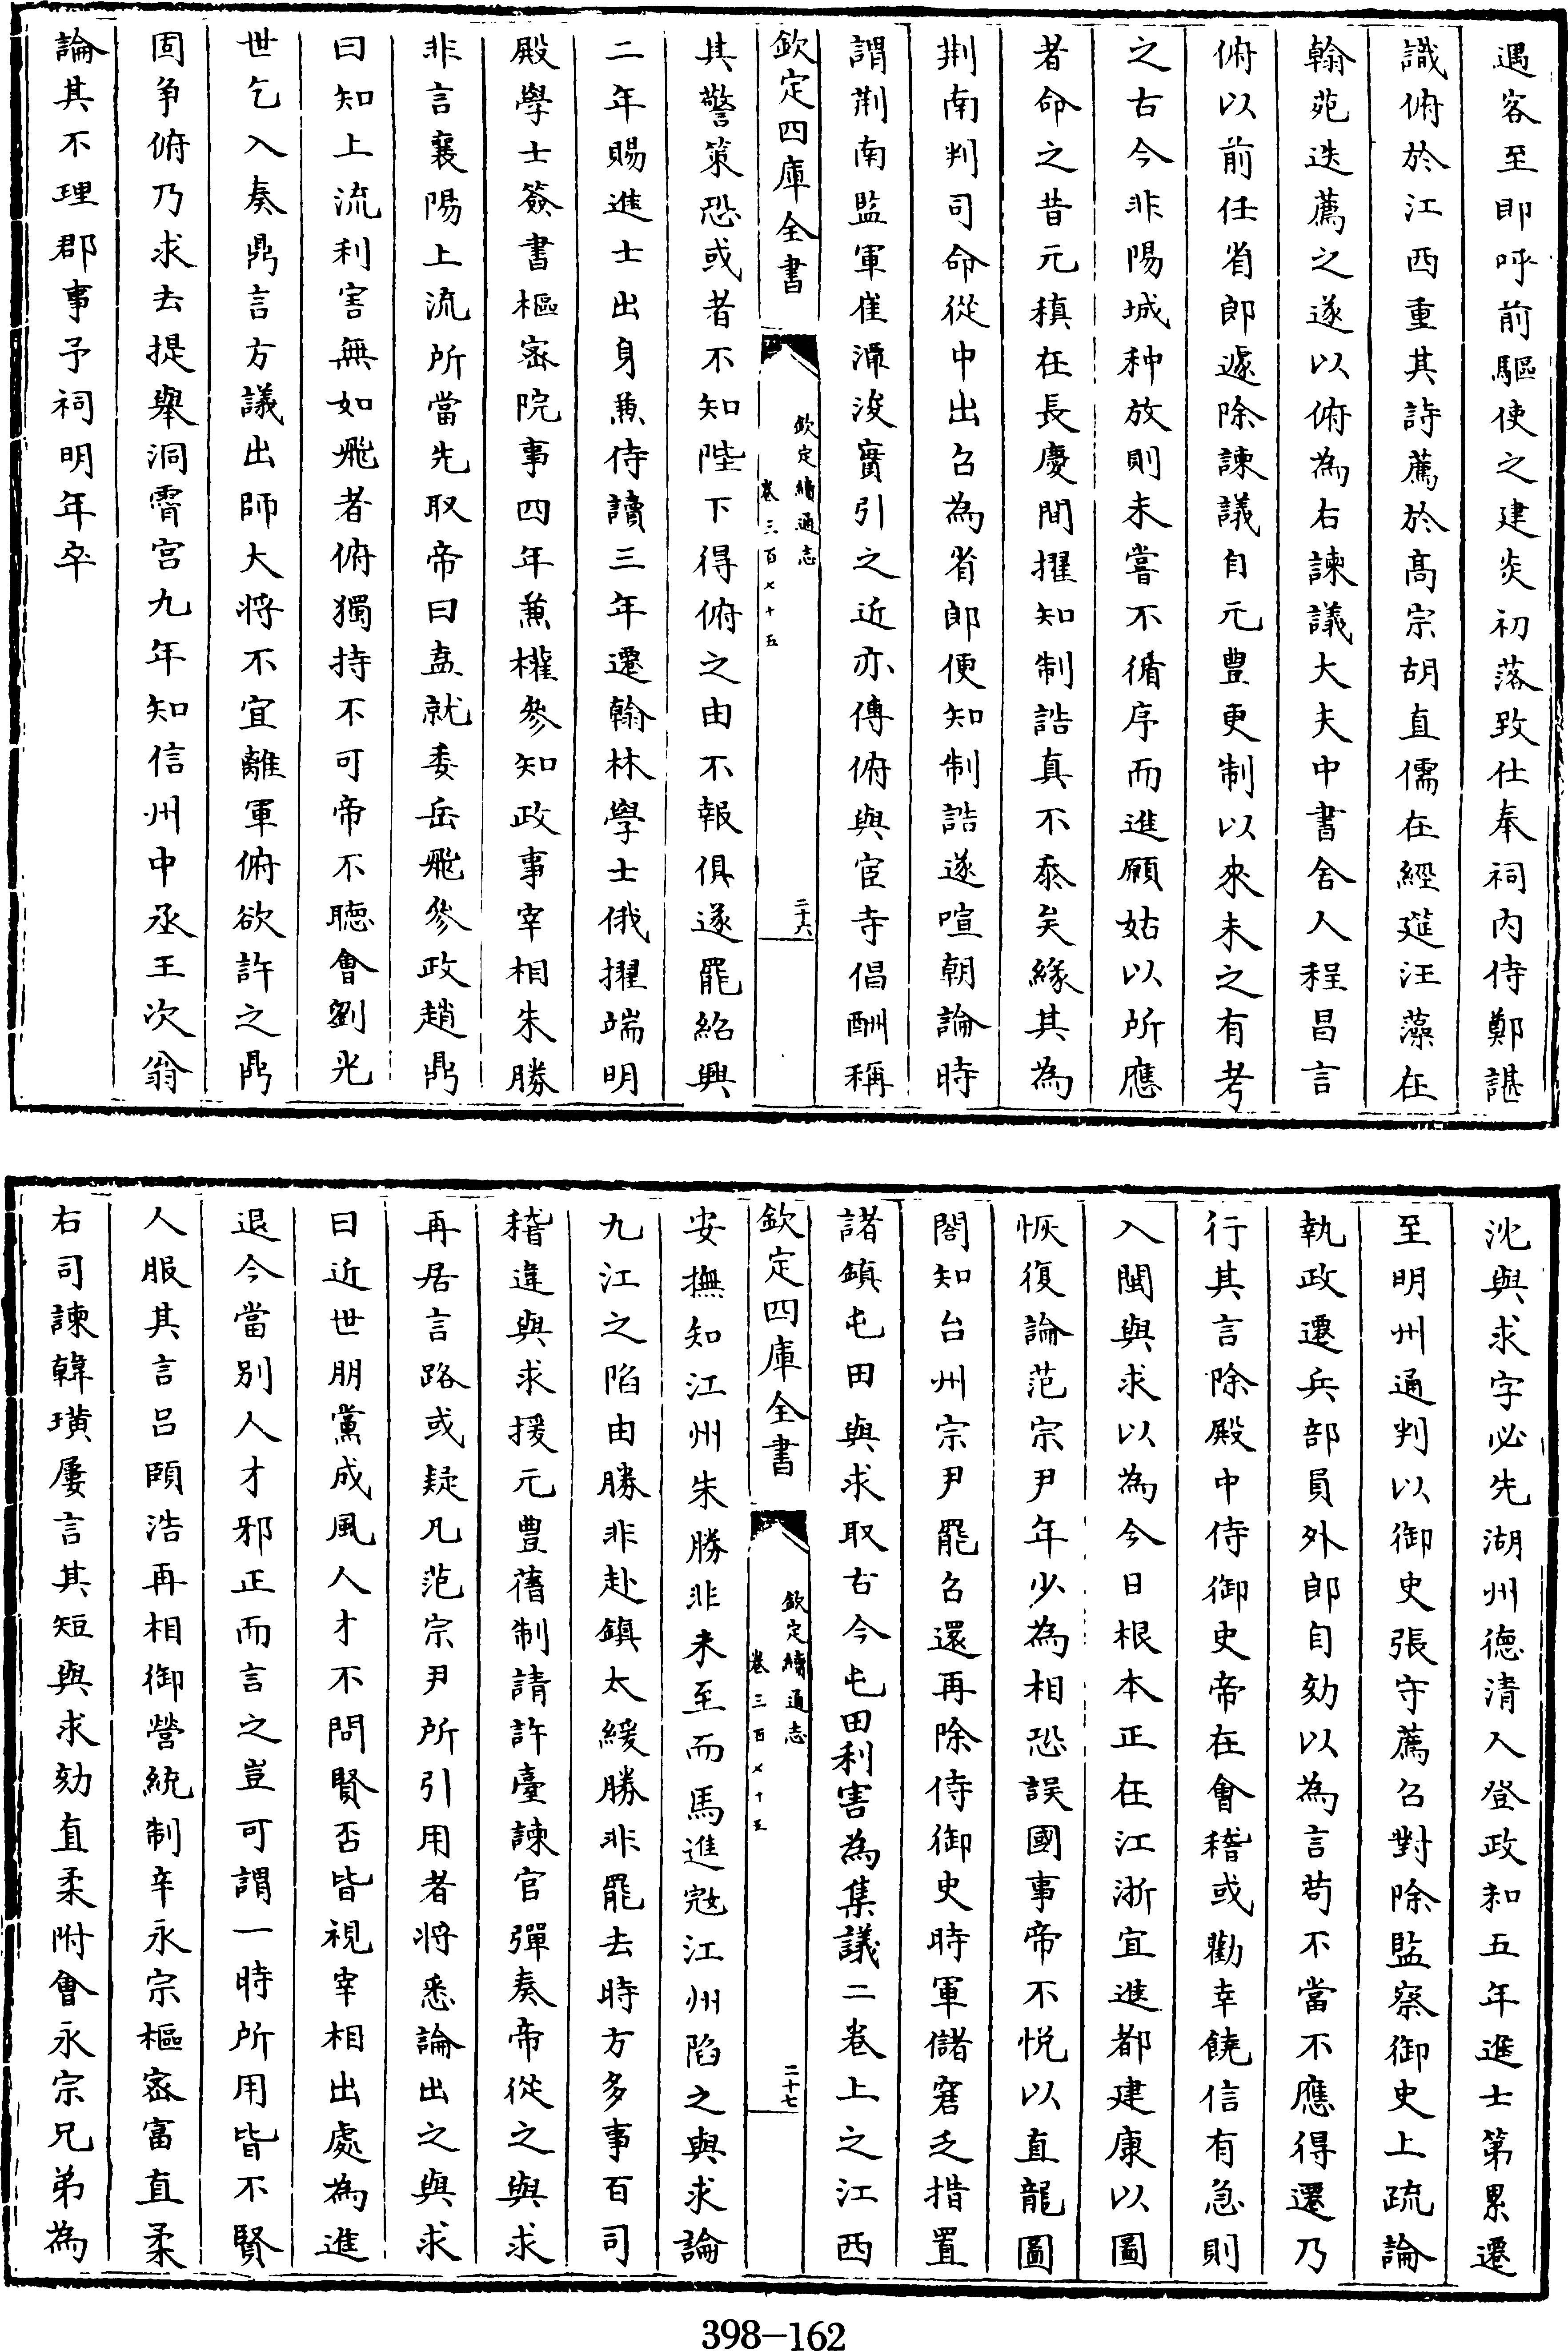 遇客至即呼前驅使之建炎初落致仕奉祠内侍鄭諶
識俯於江西重其詩薦於髙宗胡直儒在經筵汪藻在
翰苑迭薦之遂以俯為右諫議大夫中書舍人程昌言
俯以前任省郎遽除諫議自元豊更制以來未之有考
之古今非陽城种放則未嘗不循序而進願姑以所應
者命之昔元稹在長慶間擢知制誥真不忝矣緣其為
荆南判司命從中出召為省郎便知制誥遂喧朝論時
謂荆南監軍崔潭浚實引之近亦傳俯與宦寺倡酬稱
欽定四庫全書
欽定續通志
卷三百七十五
二十六
其警策恐或者不知陛下得俯之由不報俱遂罷紹興
二年賜進士出身兼侍讀三年遷翰林學士俄擢端明
殿學士簽書樞密院事四年兼權參知政事宰相朱勝
非言襄陽上流所當先取帝曰盍就委岳飛參政趙鼎
曰知上流利害無如飛者俯獨持不可帝不聽會劉光
世乞入奏鼎言方議出師大将不宜離軍俯欲許之鼎
固争俯乃求去提舉洞霄宫九年知信州中丞王次翁
論其不理郡事予祠明年卒
沈與求字必先湖州德清人登政和五年進士第累遷
至明州通判以御史張守薦召對除監察御史上疏論
執政遷兵部員外郎自劾以為言苟不當不應得遷乃
行其言除殿中侍御史帝在會稽或勸幸饒信有急則
入閩與求以為今日根本正在江浙宜進都建康以圖
恢復論范宗尹年少為相恐誤國事帝不悦以直龍圖
閣知台州宗尹罷召還再除侍御史時軍儲窘乏措置
諸鎮屯田與求取古今屯田利害為集議二卷上之江西
欽定四庫全書
欽定續通志
卷三百七十五
二十七
安撫知江州朱勝非未至而馬進寇江州陷之與求論
九江之陷由勝非赴鎮太緩勝非罷去時方多事百司
稽違與求援元豊舊制請許臺諫官彈奏帝從之與求
再居言路或疑凡范宗尹所引用者將悉論出之與求
曰近世朋黨成風人才不問賢否皆視宰相出處為進
退今當别人才邪正而言之豈可謂一時所用皆不賢
人服其言吕頤浩再相御營統制辛永宗樞密富直柔
右司諫韓璜屢言其短與求劾直柔附會永宗兄弟為
398—162